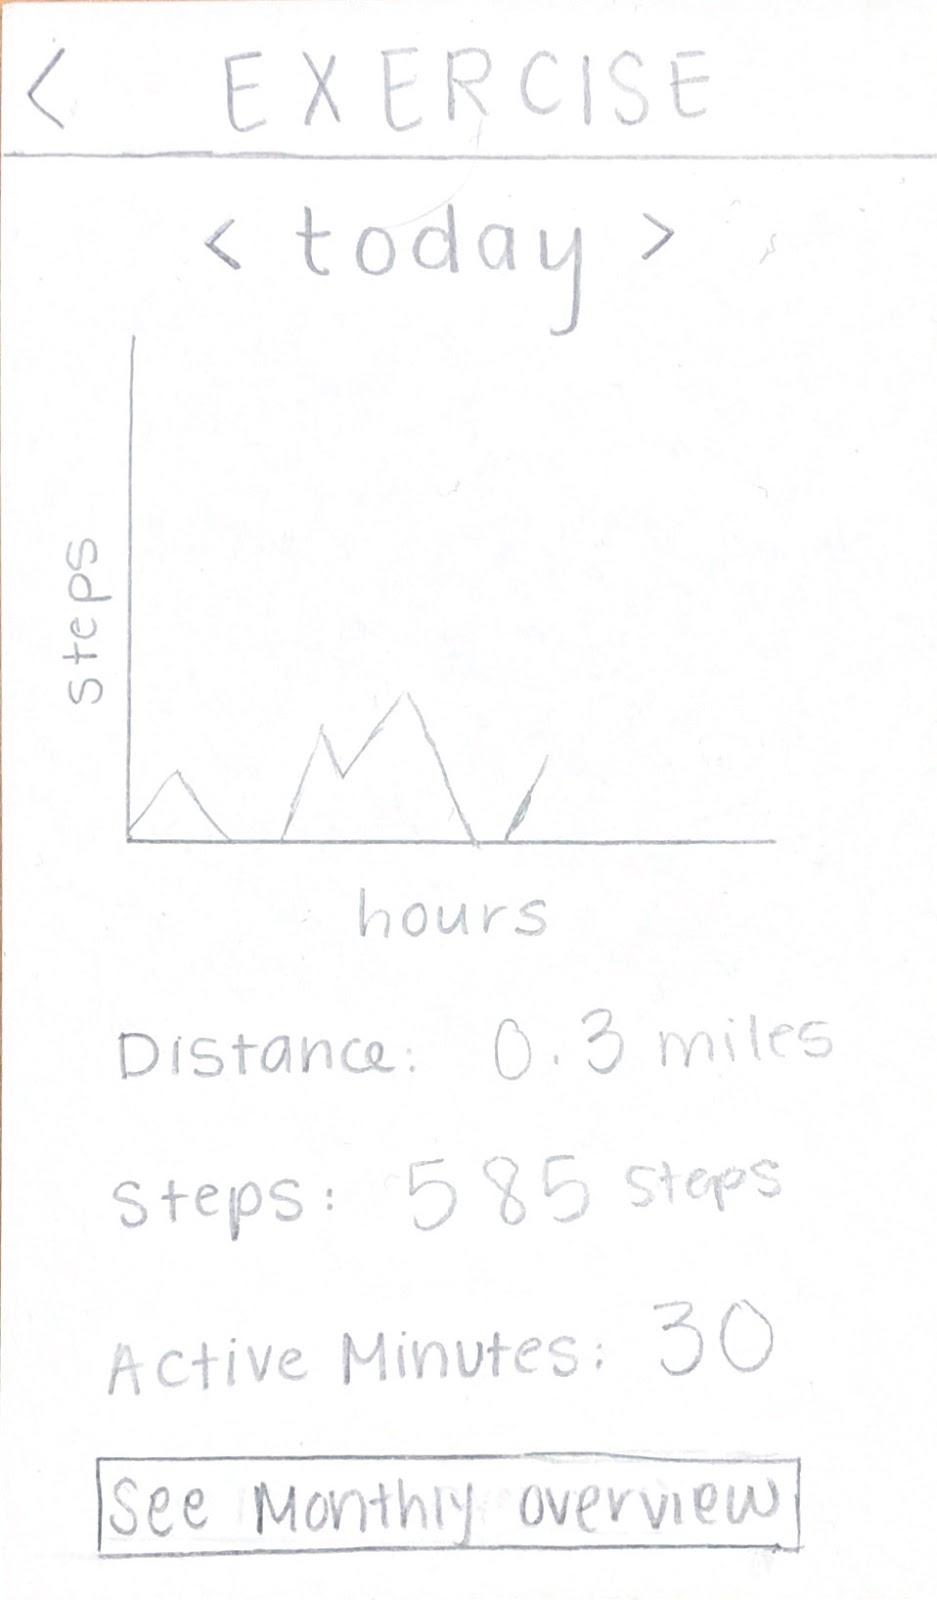 < EXERCISE
< today >
steps
hours
Distance: 0.3 miles
steps: 585 steps
Active Minutes: 30
See Monthly overview